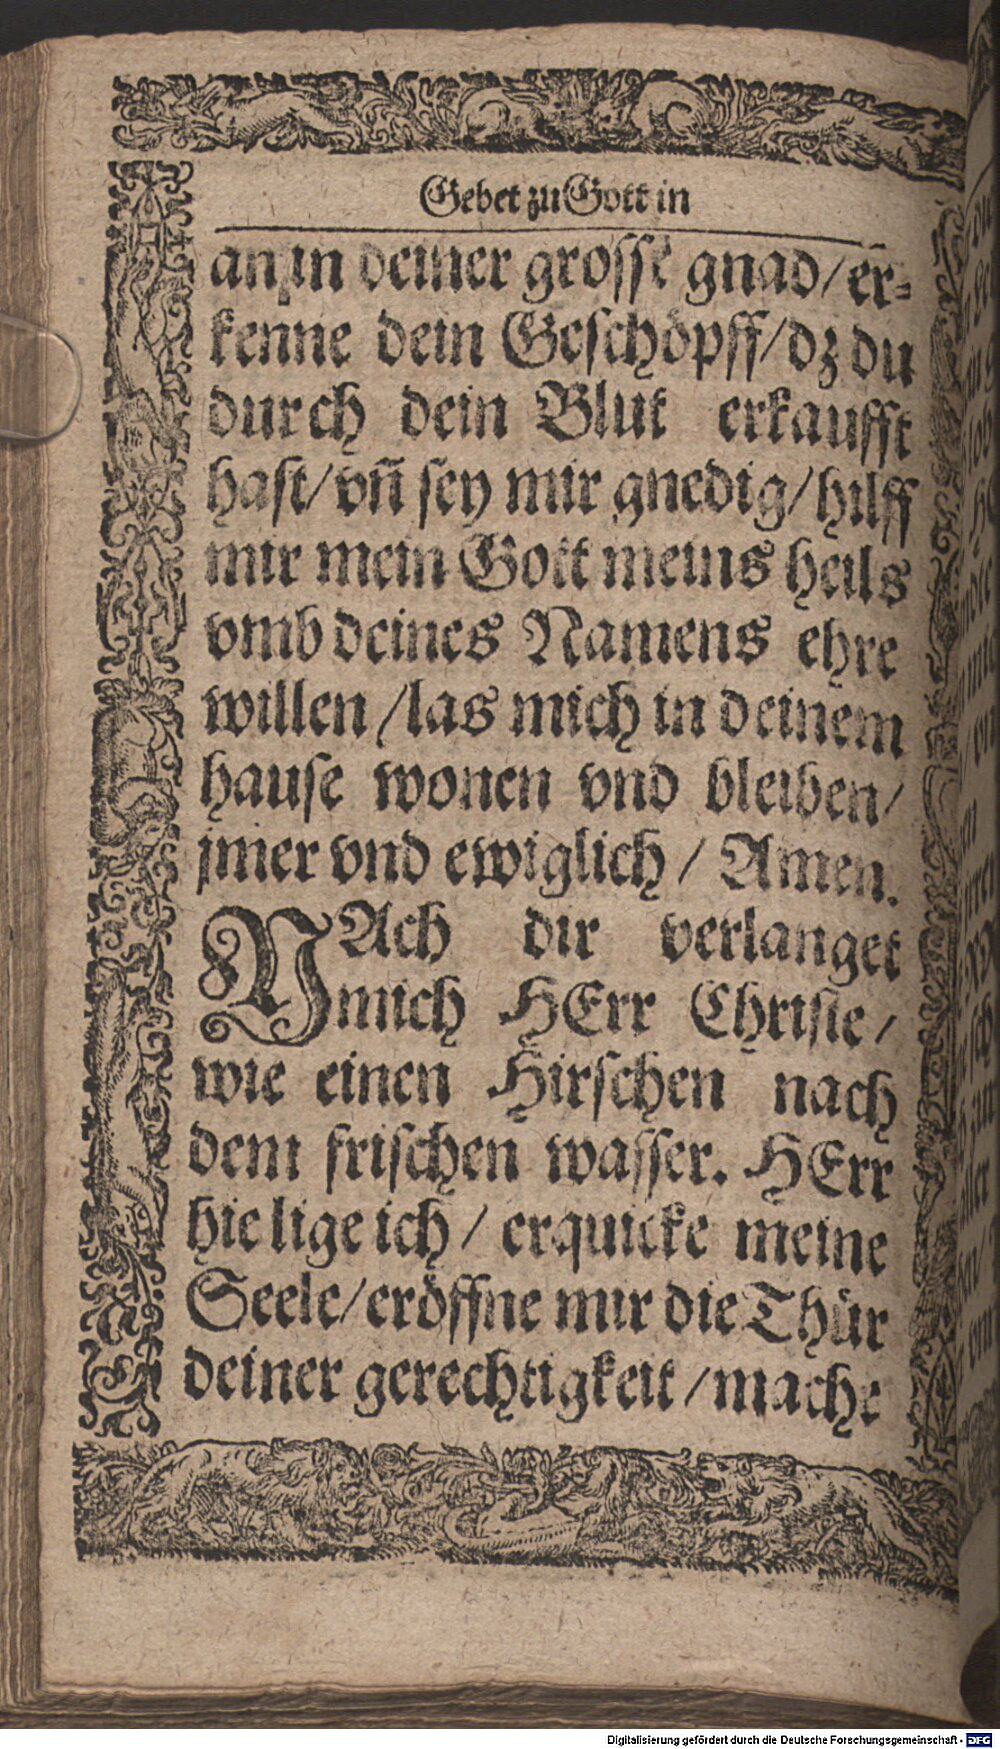 Gebet zu Gott in
an in deiner grossē gnad/ er-
kenne dein Geschöpff/ dz du
durch dein Blut erkaufft
hast/ vñ sey mir gnedig/ hilff
mir mein Gott meins heils
vmb deines Namens ehre
willen / las mich in deinem
hause wonen vnd bleiben/
jmer vnd ewiglich / Amen.
NAch dir verlanget
mich HErr Christe/
wie einen Hirschen nach
dem frischen wasser. HErr
hie lige ich / erquicke meine
Seele/ eröffne mir die Thür
deiner gerechtigkeit / mache
Digitalisierung gefördert durch die Deutsche Forschungsgemeinschaft - DFG